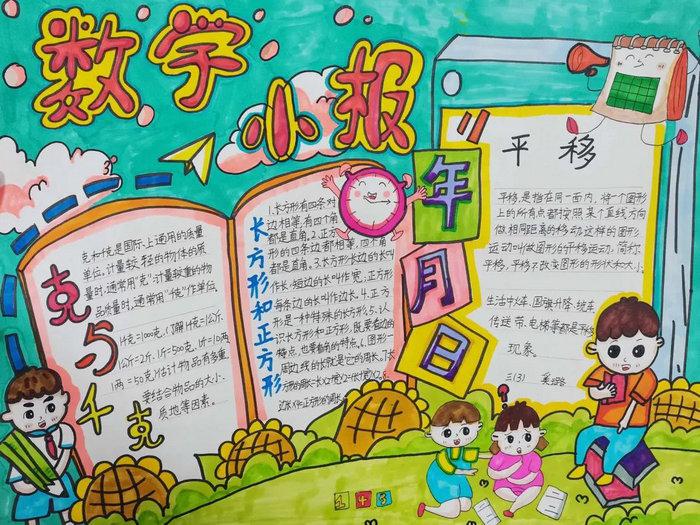 数学
小报
克与千克
克和千克是国际上通用的质量
单位,计量较轻的物体的质
量时,通常用“克”;计量较重的物
品质量时,通常用“千克”作单位
1千克=1000克,(了解1千克=1公斤,
1公斤=2斤、1斤=500克,1斤=10两
1两=50克)估计物品有多重,
要结合物品的大小、
质地等因素。
长方形和正方形
1.长方形有四条对
边相等,有四个角
都是直角。2.正方
形的四条边都相等,四个角
都是直角。3.长方形长边的长叫
作长,短边的长叫作宽,正方形
每条边的长叫作边长。4.正方
形是一种特殊的长方形。5.认
识长方形和正方形,既要看边的
特点,也要看角的特点。6.图形一
周边线的长就是它的周长。7.长
年月日
平移
平移,是指在同一面内,将一个图形
上的所有点都按照某个直线方向
做相同距离的移动,这样的图形
运动叫做图形的平移运动,简称
平移,平移不改变图形的形状和大小。
生活中火车、国旗升降、
传送带、电梯等都是平移
现象。
三(3)
1+3